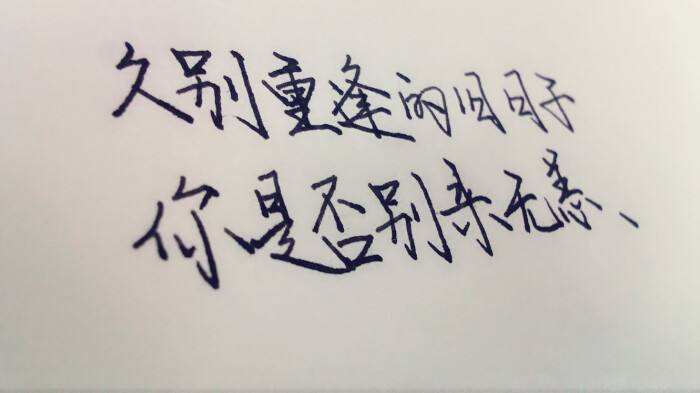 久别重逢的旧日子
你是否别来无恙、